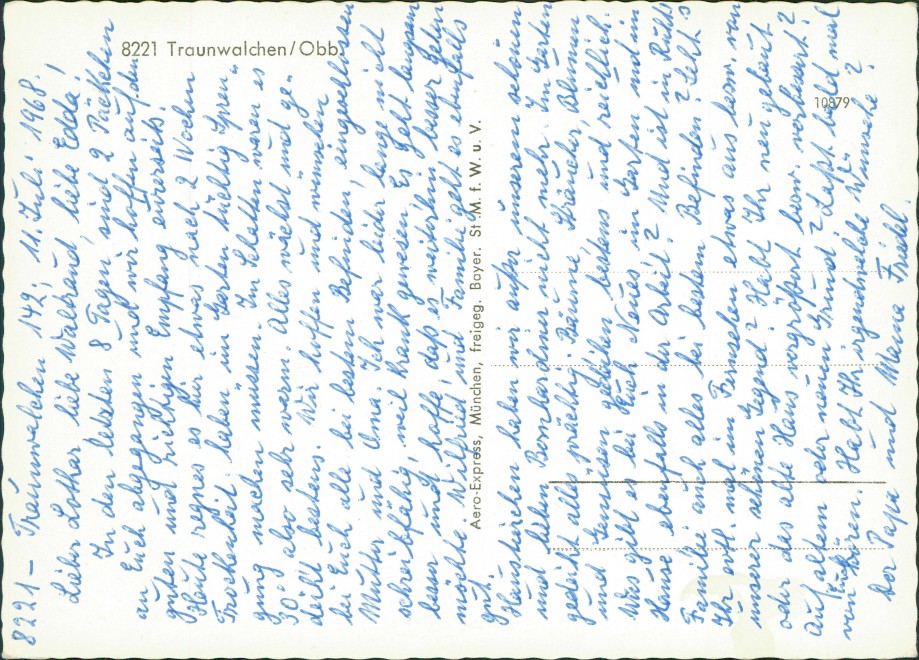 8221 Traunwalchen/Obb.
10879
Aero-Express, München, freigeg. Bayer. St.M.f.W.u.V.
8221 – Traunwalchen 142, 11. Juli 1968.
Lieber Lothar, liebe Waltraud, liebe Edda!
In den letzten 8 Tagen, sind 2 Päckchen
an Euch abgegangen und wir hoffen auf den
guten und richtigen Empfang eurerseits.
Heute regnet es hier etwas nach 2 Wochen
Trockenheit. haben im Garten tüchtig Spren"
gung machen müssen. Im Schatten waren es
30° also sehr warm. Alles wächst und ge"
deiht bestens. Wir hoffen und wünschen
bei Euch alle bei bestem Befinden, eingeschlossen
Mutter und Oma. Ich war leider lange nicht
schreibfähig, weil krank gewesen. Es geht langsam
besser und hoffe, daß es weiterhin besser gehen
möchte. Wilfried und Familie geht es ebenfalls
gut.
haben wir außer unserem schönen
und lieben nicht mehr. Im Garten
gedeiht alles prächtig. Bäume, Sträucher, Blumen
und Gemüsen gedeihen bestens und reichlich.
Was gibt es bei Euch Neues im Garten und im
Hause ebenfalls in der Arbeit? Und ist in Ruths
Familie auch alles bei bestem Befinden? Seht
Ihr mal im Fernsehen etwas aus bezw. von
unserer schönen Gegend? Habt Ihr neu gebaut?
oder das alte Haus vergrößert bezw. verbessert?
Auf altem oder neuem Grund? Laßt bald mal
von Euch hören. Habt Ihr irgendwelche Wünsche?
Der Papa und Mama Friedl.